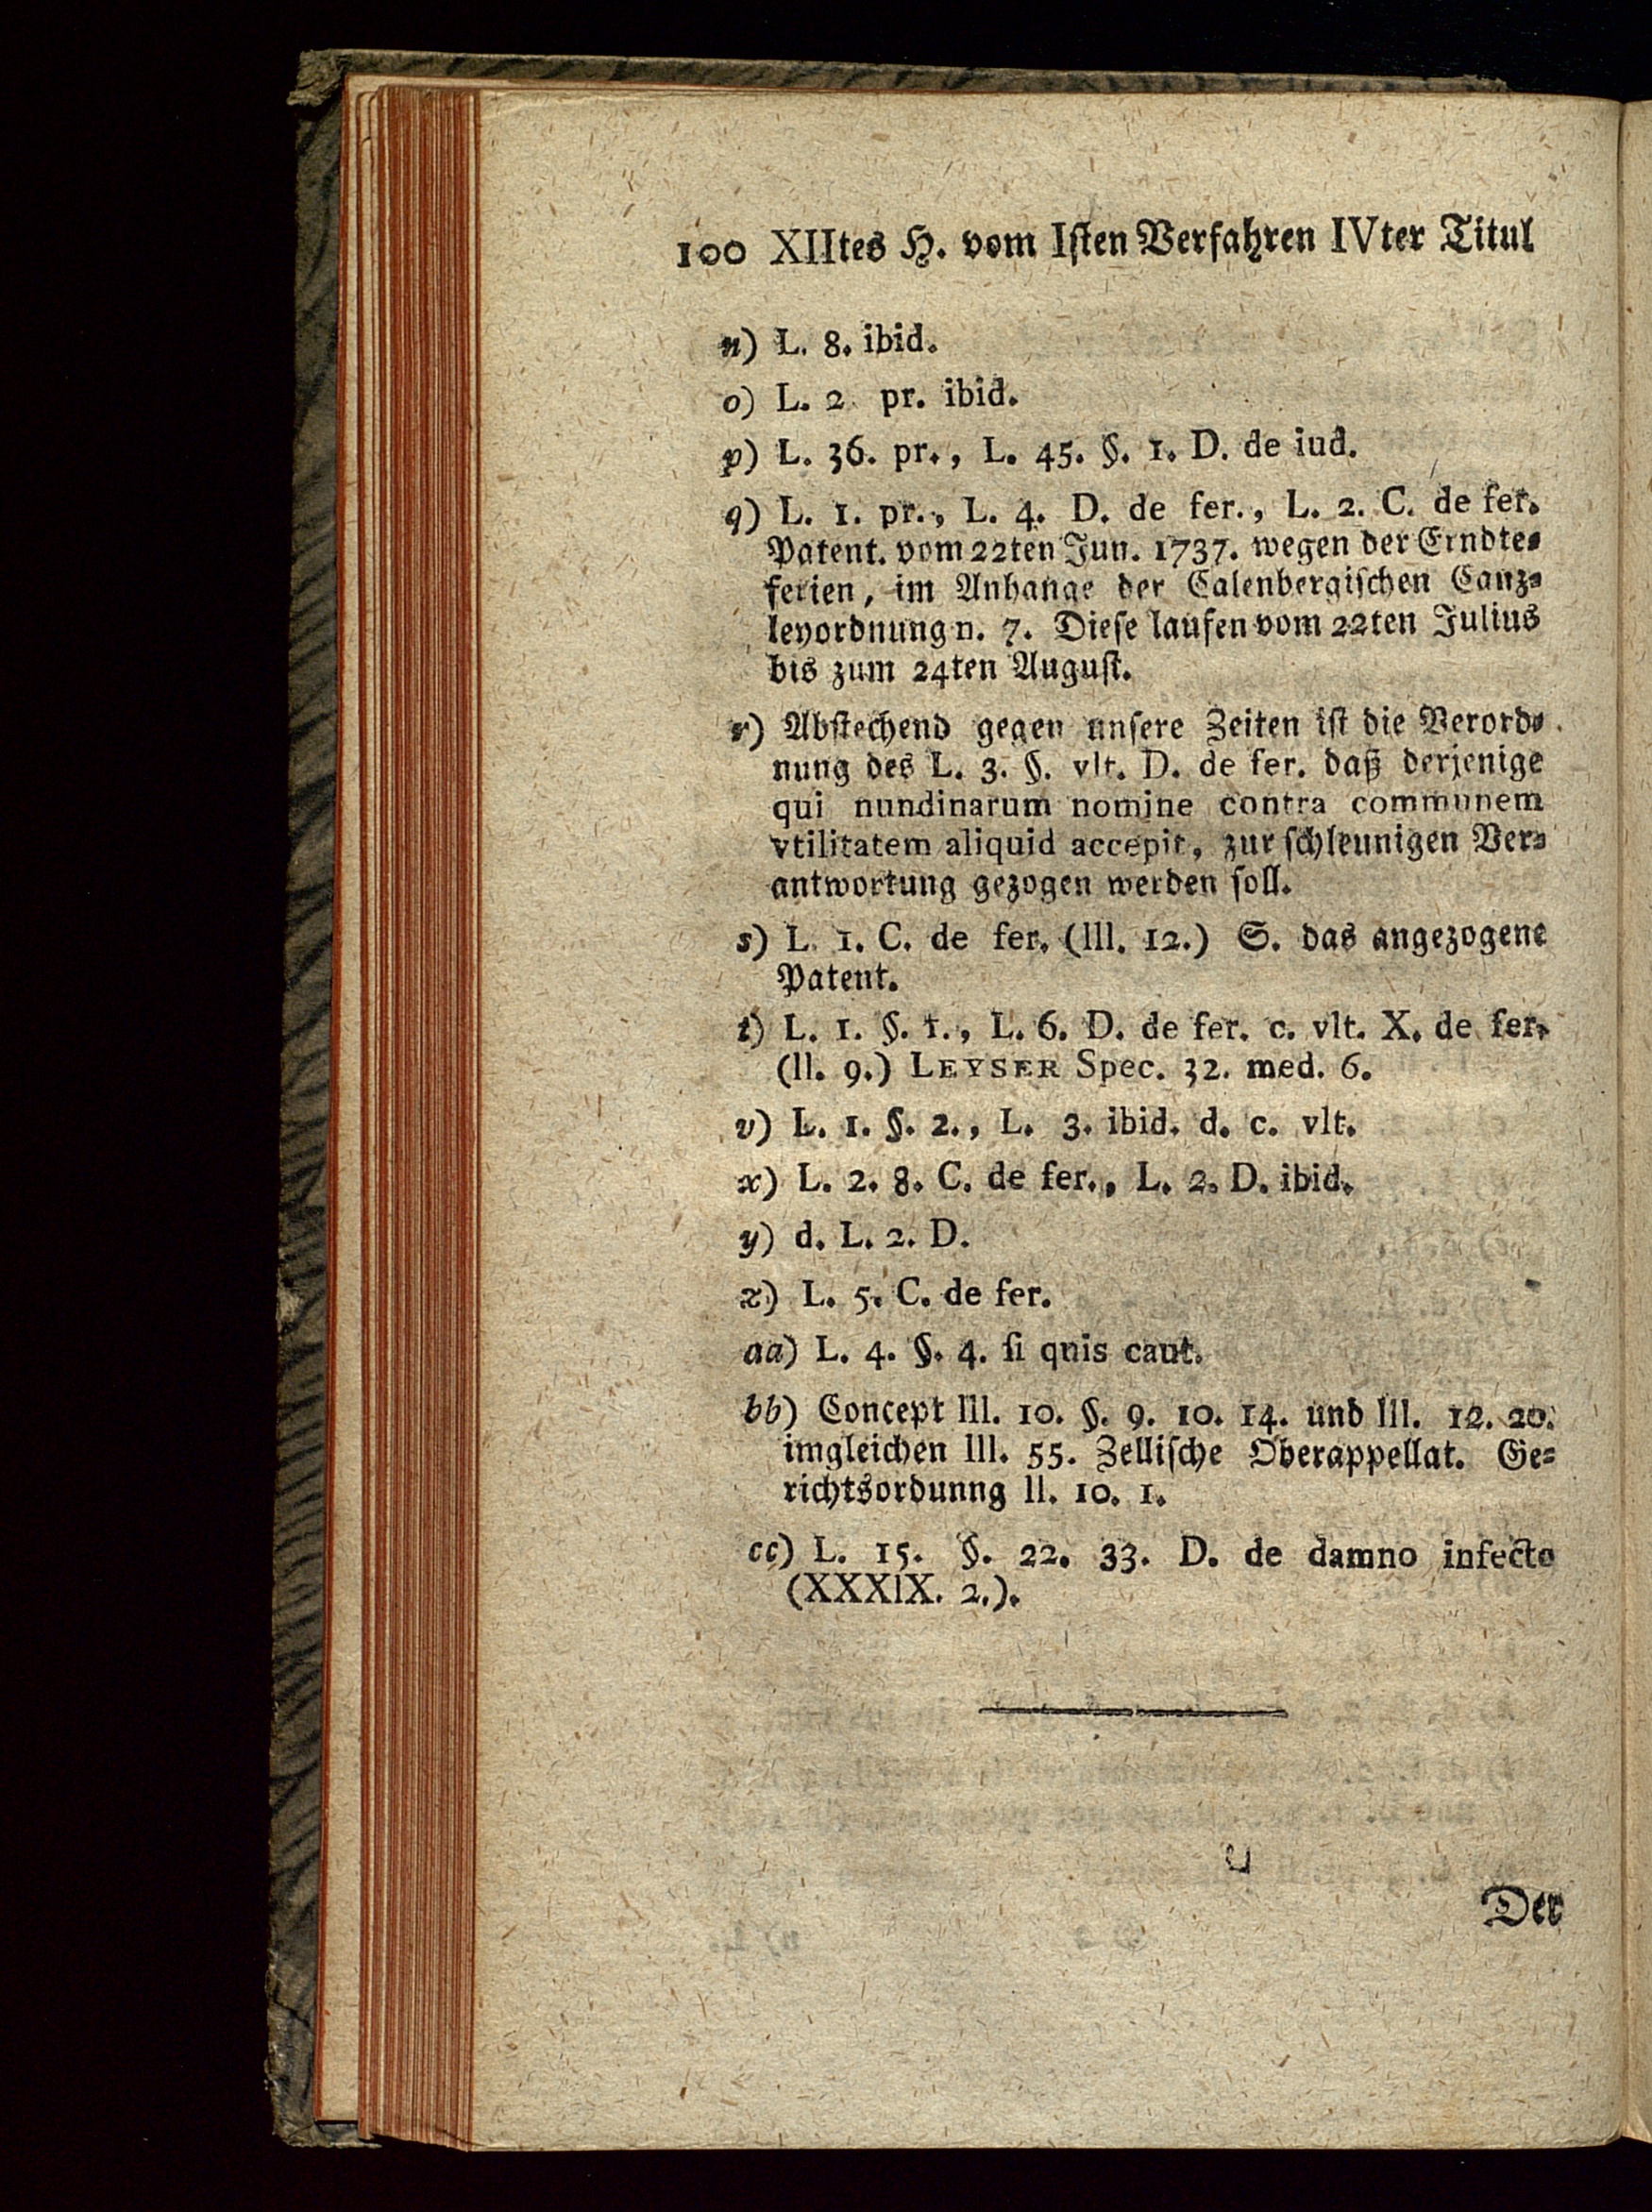 100 XIItes H. vom Isten Verfahren IVter Titul
n) L. 8. ibid.
o) L. 2 pr. ibid.
p) L. 36. pr., L. 45. §. 1. D. de iud.
q) L. 1. pr., L. 4. D. de fer., L. 2. C. de fer.
Patent. vom 22ten Jun. 1737. wegen der Erndte-
ferien, im Anhange der Calenbergischen Canz-
leyordnung n. 7. Diese laufen vom 22ten Julius
bis zum 24ten August.
r) Abstechend gegen unsere Zeiten ist die Verord-
nung des L. 3. §. vlt. D. de fer. daß derjenige
qui nundinarum nomine contra communem
vtilitatem aliquid accepit, zur schleunigen Ver-
antwortung gezogen werden soll.
s) L. 1. C. de fer. (III. 12.) S. das angezogene
Patent.
t) L. 1. §. 1., L. 6. D. de fer. c. vlt. X. de fer.
(II. 9.) LEYSER Spec. 32. med. 6.
v) L. 1. §. 2., L. 3. ibid. d. c. vlt.
x) L. 2. 8. C. de fer., L. 2. D. ibid.
y) d. L. 2. D.
z) L. 5. C. de fer.
aa) L. 4. §. 4. si quis caut.
bb) Concept III. 10. §. 9. 10. 14. und III. 12. 20.
imgleichen III. 55. Zellische Oberappellat. Ge-
richtsordunng II. 10. 1.
cc) L. 15. §. 22. 33. D. de damno infecto
(XXXIX. 2.).
Der